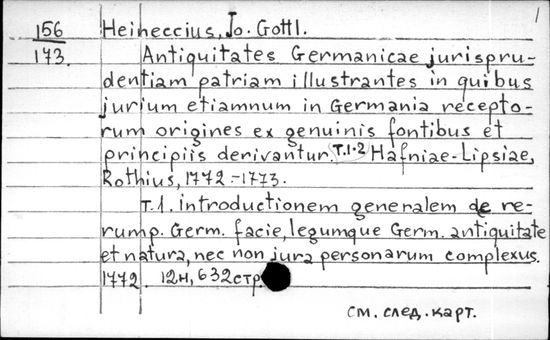 1
156 Heineccius, Jo. Gottl.
173. Antiquitates Germanicae jurispru-
dentiam patriam illustrantes in quibus
jurium etiamnum in Germania recepto-
rum origines ex genuinis fontibus et
principiis derivantur. T.1-2 Hafniae-Lipsiae,
Rothius, 1772-1773.
T.1. introductionem generalem de re-
rump. Germ. facie, legumque Germ. antiquitate
et natura, nec non jura personarum complexus.
1772. 12н, 632стр
см. след. карт.